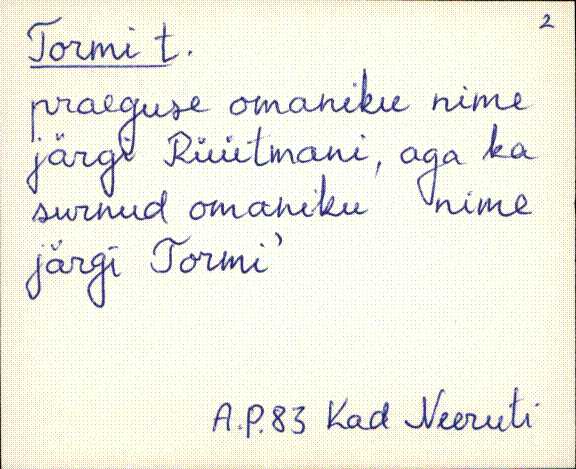 2
Tormi t.
praeguse omaniku nime
järgi Rüütmani, aga ka
surnud omaniku nime
järgi Tormi'
A.P.83 Kad Neeruti